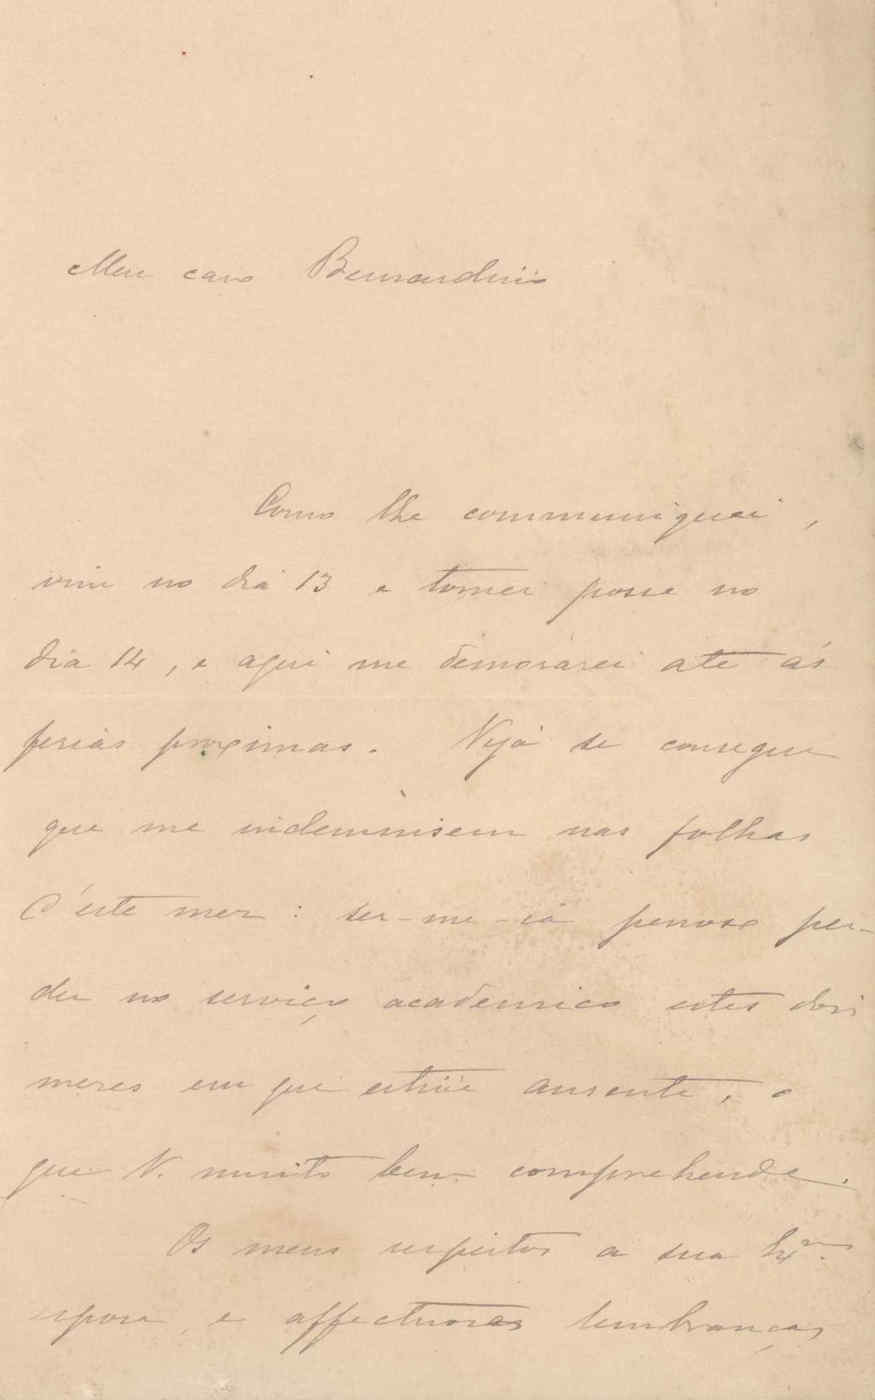 Meu caro Bernardino
Como lhe communiquei,
vim no dia 13 e tomei posse no
dia 14, e aqui me demorarei até ás
ferias proximas. Veja se consegue
que me indemnisem nas folhas
d'este mez: ser-me-ia penoso per-
der no serviço academico estes dois
mezes em que estive ausente, o
que V. muito bem comprehende.
Os meus respeitos a sua Exma.
esposa, e affectuosas lembranças